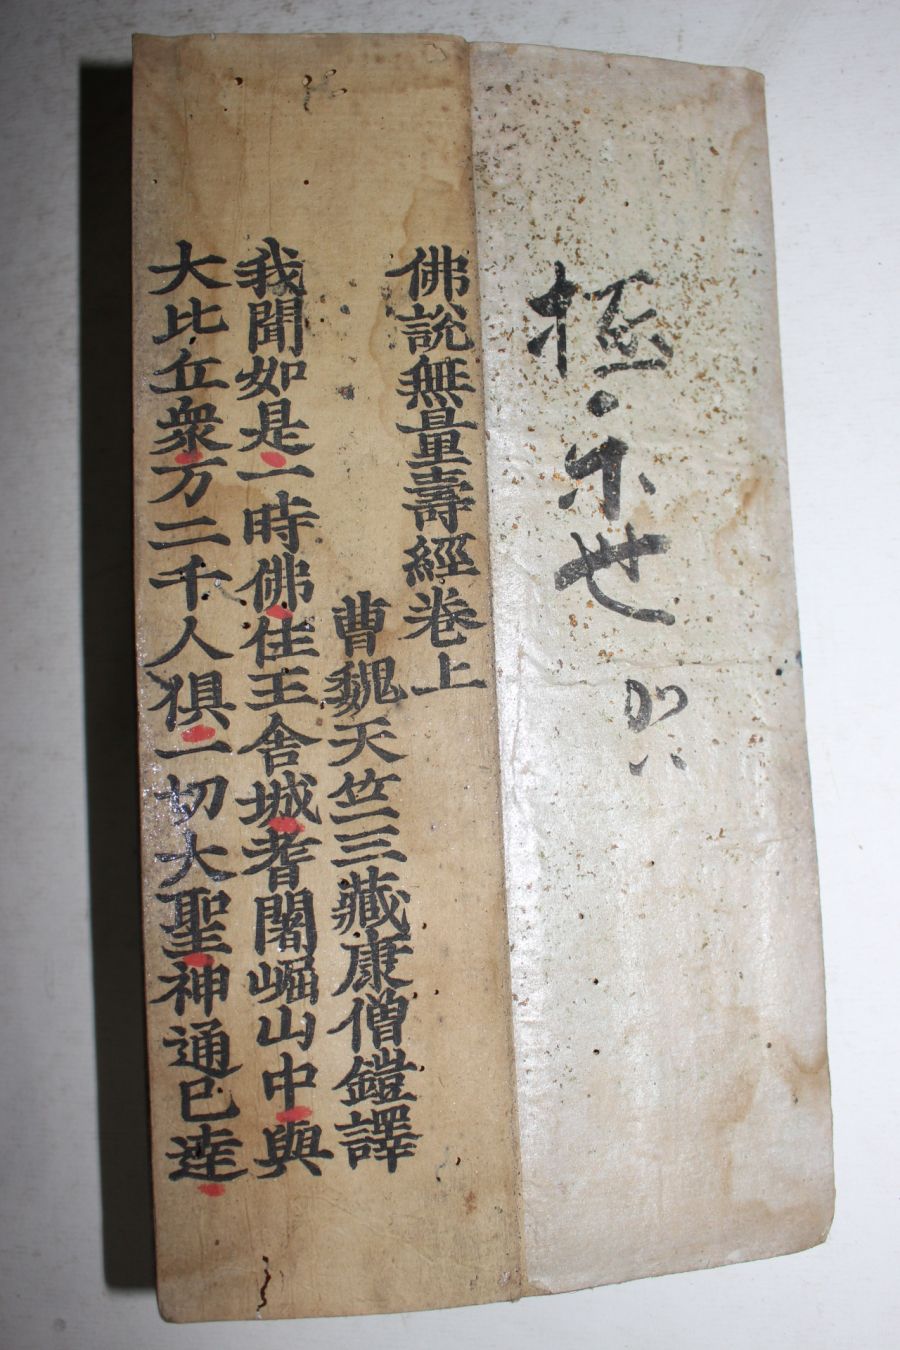 極樂世
佛說無量壽經卷上
曹魏天竺三藏康僧鎧譯
我聞如是一時佛住王舍城耆闍崛山中與
大比丘衆万二千人俱一切大聖神通已達